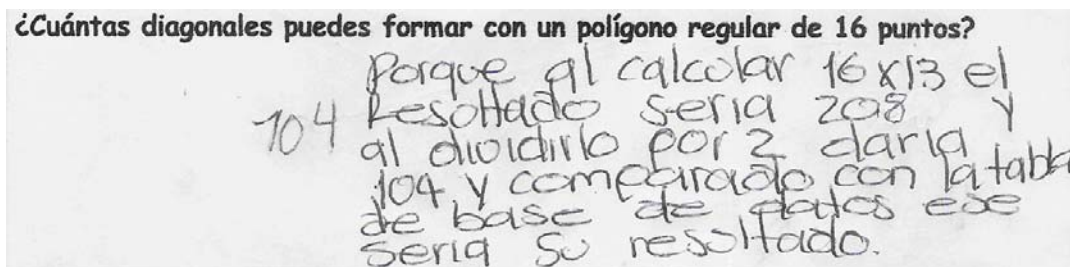 ¿Cuántas diagonales puedes formar con un polígono regular de 16 puntos?
Porque al calcular 16x13 el
104 Resoltado seria 208 y
al dividirlo por 2 daria
104 y comparado con la tabla
de base de datos ese
seria su resoltado.